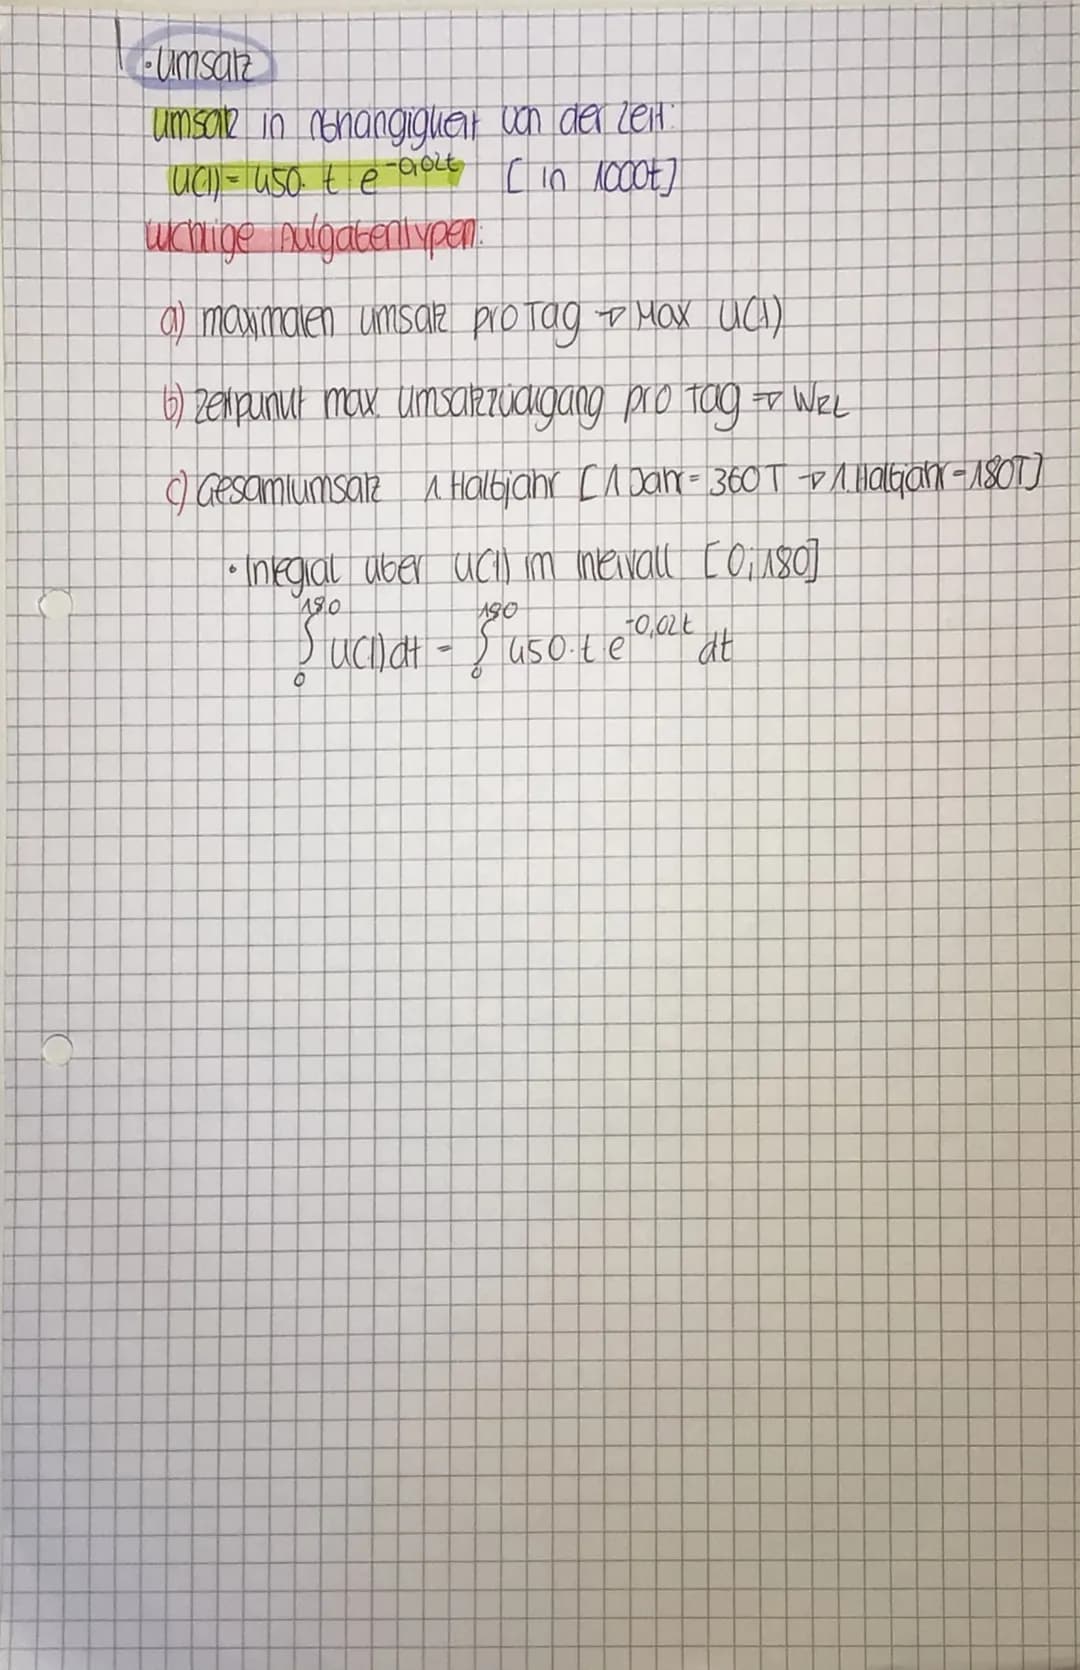 · Umsatz
Umsatz in Abhängigkeit von der Zeit:
U(t) = 450 · t e^-0,02t [in 1000t]
wichtige Aufgabentypen:
a) maximalen Umsatz pro Tag → Max U(t)
b) Zeitpunkt max. Umsatzrückgang pro Tag → WRL
c) Gesamtumsatz 1 Halbjahr [1 Jahr = 360T → 1. Halbjahr = 180T]
· Integral über U(t) im Intervall [0;180]
∫₀¹⁸⁰ U(t)dt = ∫₀¹⁸⁰ 450·t e^-0,02t dt